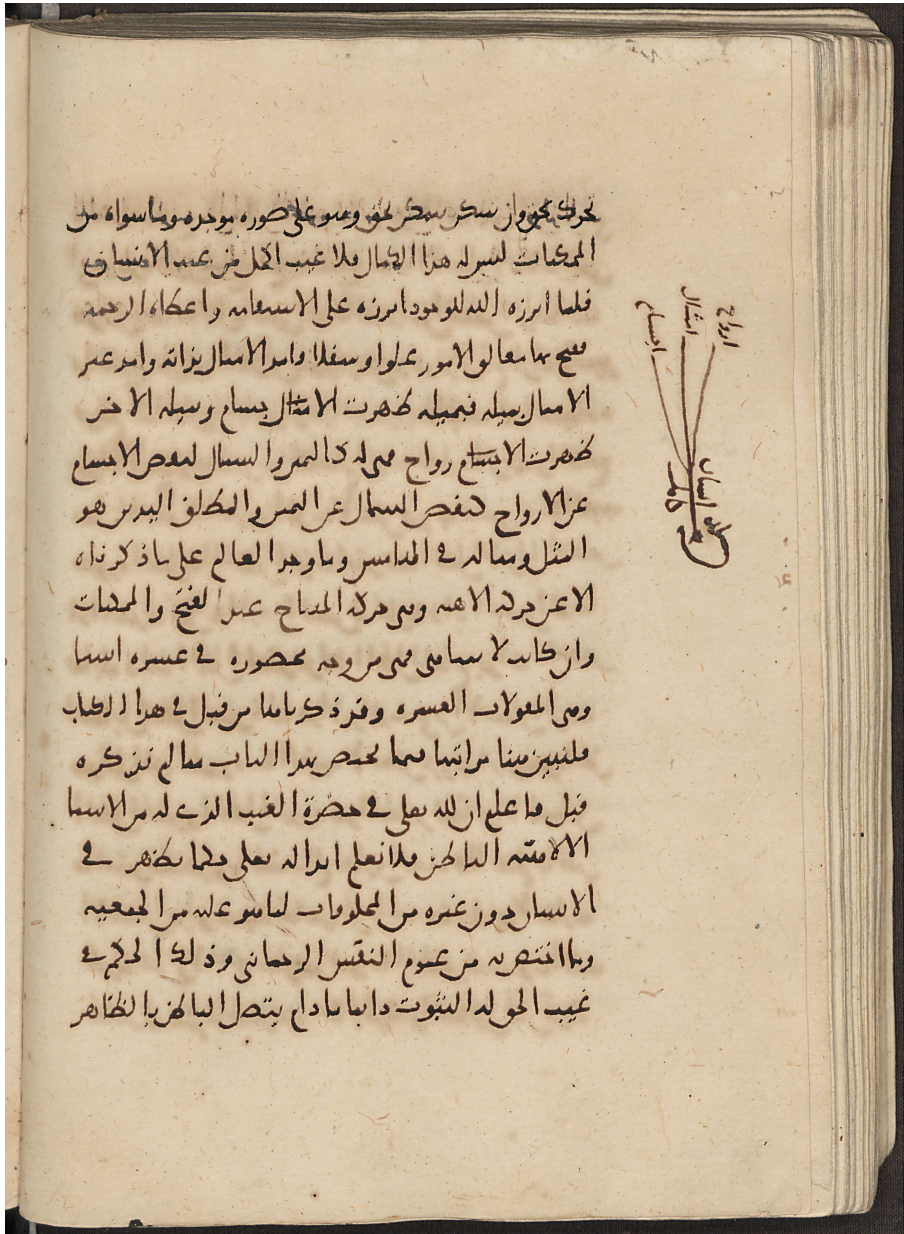 تحرك بحق وان سكن سكن بحق وهو على صورة موجده وما سواه من
الممكنات ليس له هذا الكمال فلا غيب اكمل من غيب الانسان
فلما ابرزه الله للوجود ابرزه على الاستقامه واعطاه الرحمه
ففتح بها مغالق الامور علوا وسفلا وامد الامثال بذاته وامد غير
الامثال بمثله فبمثله ظهرت الامثال بسام وبمثله الاخر
ظهرت الاجسام رواح فهى له كاليمين والشمال لنقص الاجسام
عن الارواح كنقص الشمال عن اليمين والمطلق اليدين هو
المثل وماله فى المقامين وما وجد العالم على ما ذكرناه
الا عن حركه الاهيه وهى حركه المفتاح عند الفتح والممكنات
وان كانت لا تتناهى فهى من وجه محصوره فى عشره اشيا
وهى المقولات العشره وقد ذكرناها من قبل فى هذا الكتاب
فلنبين هنا مراتبها فيما يختص بهذا الباب مما لم نذكره
قبل فاعلم ان لله تعلى فى حضرة الغيب الذى له من الاسما
الالاهيه الباطن فلا نعلم ابدا له تعلى حكما يظهر فى
الانسان دون غيره من المخلوقات لما هو عليه من الجمعيه
وما اختص به من عموم النفس الرحمانى وذلك الحكم فى
غيب الحق له الثبوت دايما ما دام يتصل الباطن بالظاهر
ارواح
امثال
اجسام
انسان
كامل